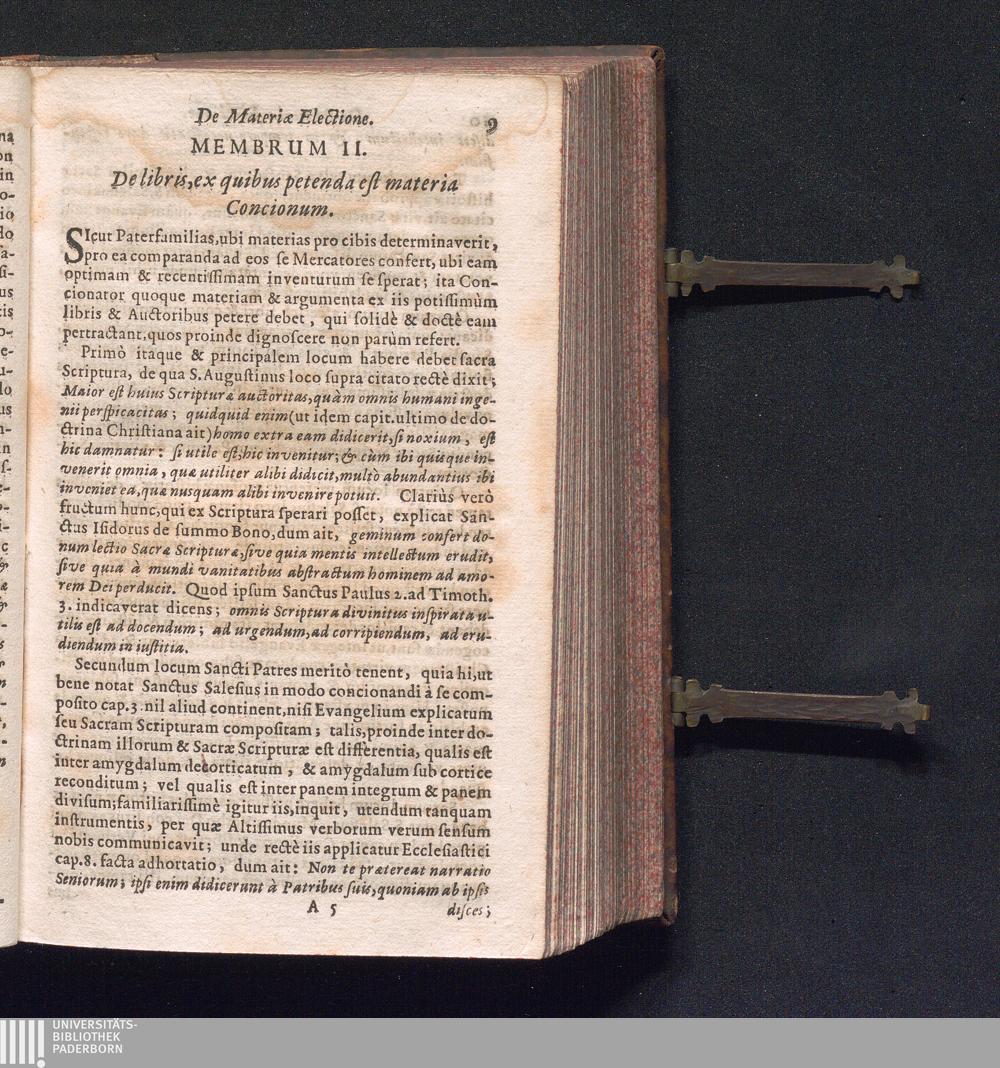 De Materiæ Electione. 9
MEMBRUM II.
De libris, ex quibus petenda eſt materia
Concionum.
SIcut Paterfamilias, ubi materias pro cibis determinaverit,
pro ea comparanda ad eos ſe Mercatores confert, ubi eam
optimam & recentiſſimam inventurum ſe ſperat; ita Con-
cionator quoque materiam & argumenta ex iis potiſſimùm
libris & Auctoribus petere debet, qui ſolidè & doctè eam
pertractant, quos proinde dignoſcere non parùm refert.
Primò itaque & principalem locum habere debet ſacra
Scriptura, de qua S. Auguſtinus loco ſupra citato rectè dixit;
Maior eſt huius Scripturæ auctoritas, quàm omnis humani inge-
nii perſpicacitas; quidquid enim (ut idem capit. ultimo de do-
ctrina Chriſtiana ait) homo extra eam didicerit, ſi noxium, eſt
hic damnatur: ſi utile eſt, hic invenitur; & cùm ibi quisque in-
venerit omnia, quæ utiliter alibi didicit, multò abundantius ibi
inveniet ea, quæ nusquam alibi invenire potuit. Clariùs verò
fructum hunc, qui ex Scriptura ſperari poſſet, explicat San-
ctus Iſidorus de ſummo Bono, dum ait, geminum confert do-
num lectio Sacræ Scripturæ, ſive quia mentis intellectum erudit,
ſive quia à mundi vanitatibus abſtractum hominem ad amo-
rem Dei perducit. Quod ipſum Sanctus Paulus 2. ad Timoth.
3. indicaverat dicens; omnis Scriptura divinitus inſpirata u-
tilis eſt ad docendum; ad urgendum, ad corripiendum, ad eru-
diendum in iuſtitia.
Secundum locum Sancti Patres meritò tenent, quia hi, ut
bene notat Sanctus Saleſius in modo concionandi à ſe com-
poſito cap. 3. nil aliud continent, niſi Evangelium explicatum
ſeu Sacram Scripturam compoſitam; talis, proinde inter do-
ctrinam illorum & Sacræ Scripturæ eſt differentia, qualis eſt
inter amygdalum decorticatum, & amygdalum ſub cortice
reconditum; vel qualis eſt inter panem integrum & panem
diviſum; familiariſſimè igitur iis, inquit, utendum tanquam
inſtrumentis, per quæ Altiſſimus verborum verum ſenſum
nobis communicavit; unde rectè iis applicatur Eccleſiaſtici
cap. 8. facta adhortatio, dum ait: Non te prætereat narratio
Seniorum; ipſi enim didicerunt à Patribus ſuis, quoniam ab ipſis
A 5 diſces;
UNIVERSITÄTS-
BIBLIOTHEK
PADERBORN